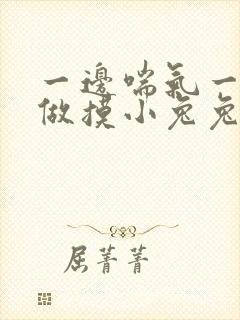 一邊喘氣一
做摸小兔兔
屈菁菁